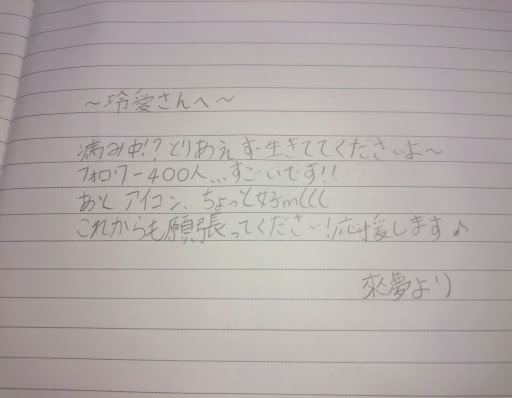 ～玲愛さんへ～
病み中!?とりあえず生きててくださいよ～
フォロワー400人...すごいです!!
あと アイコン...ちょっと好m(((
これからも願張ってください!応援します♪
來夢より